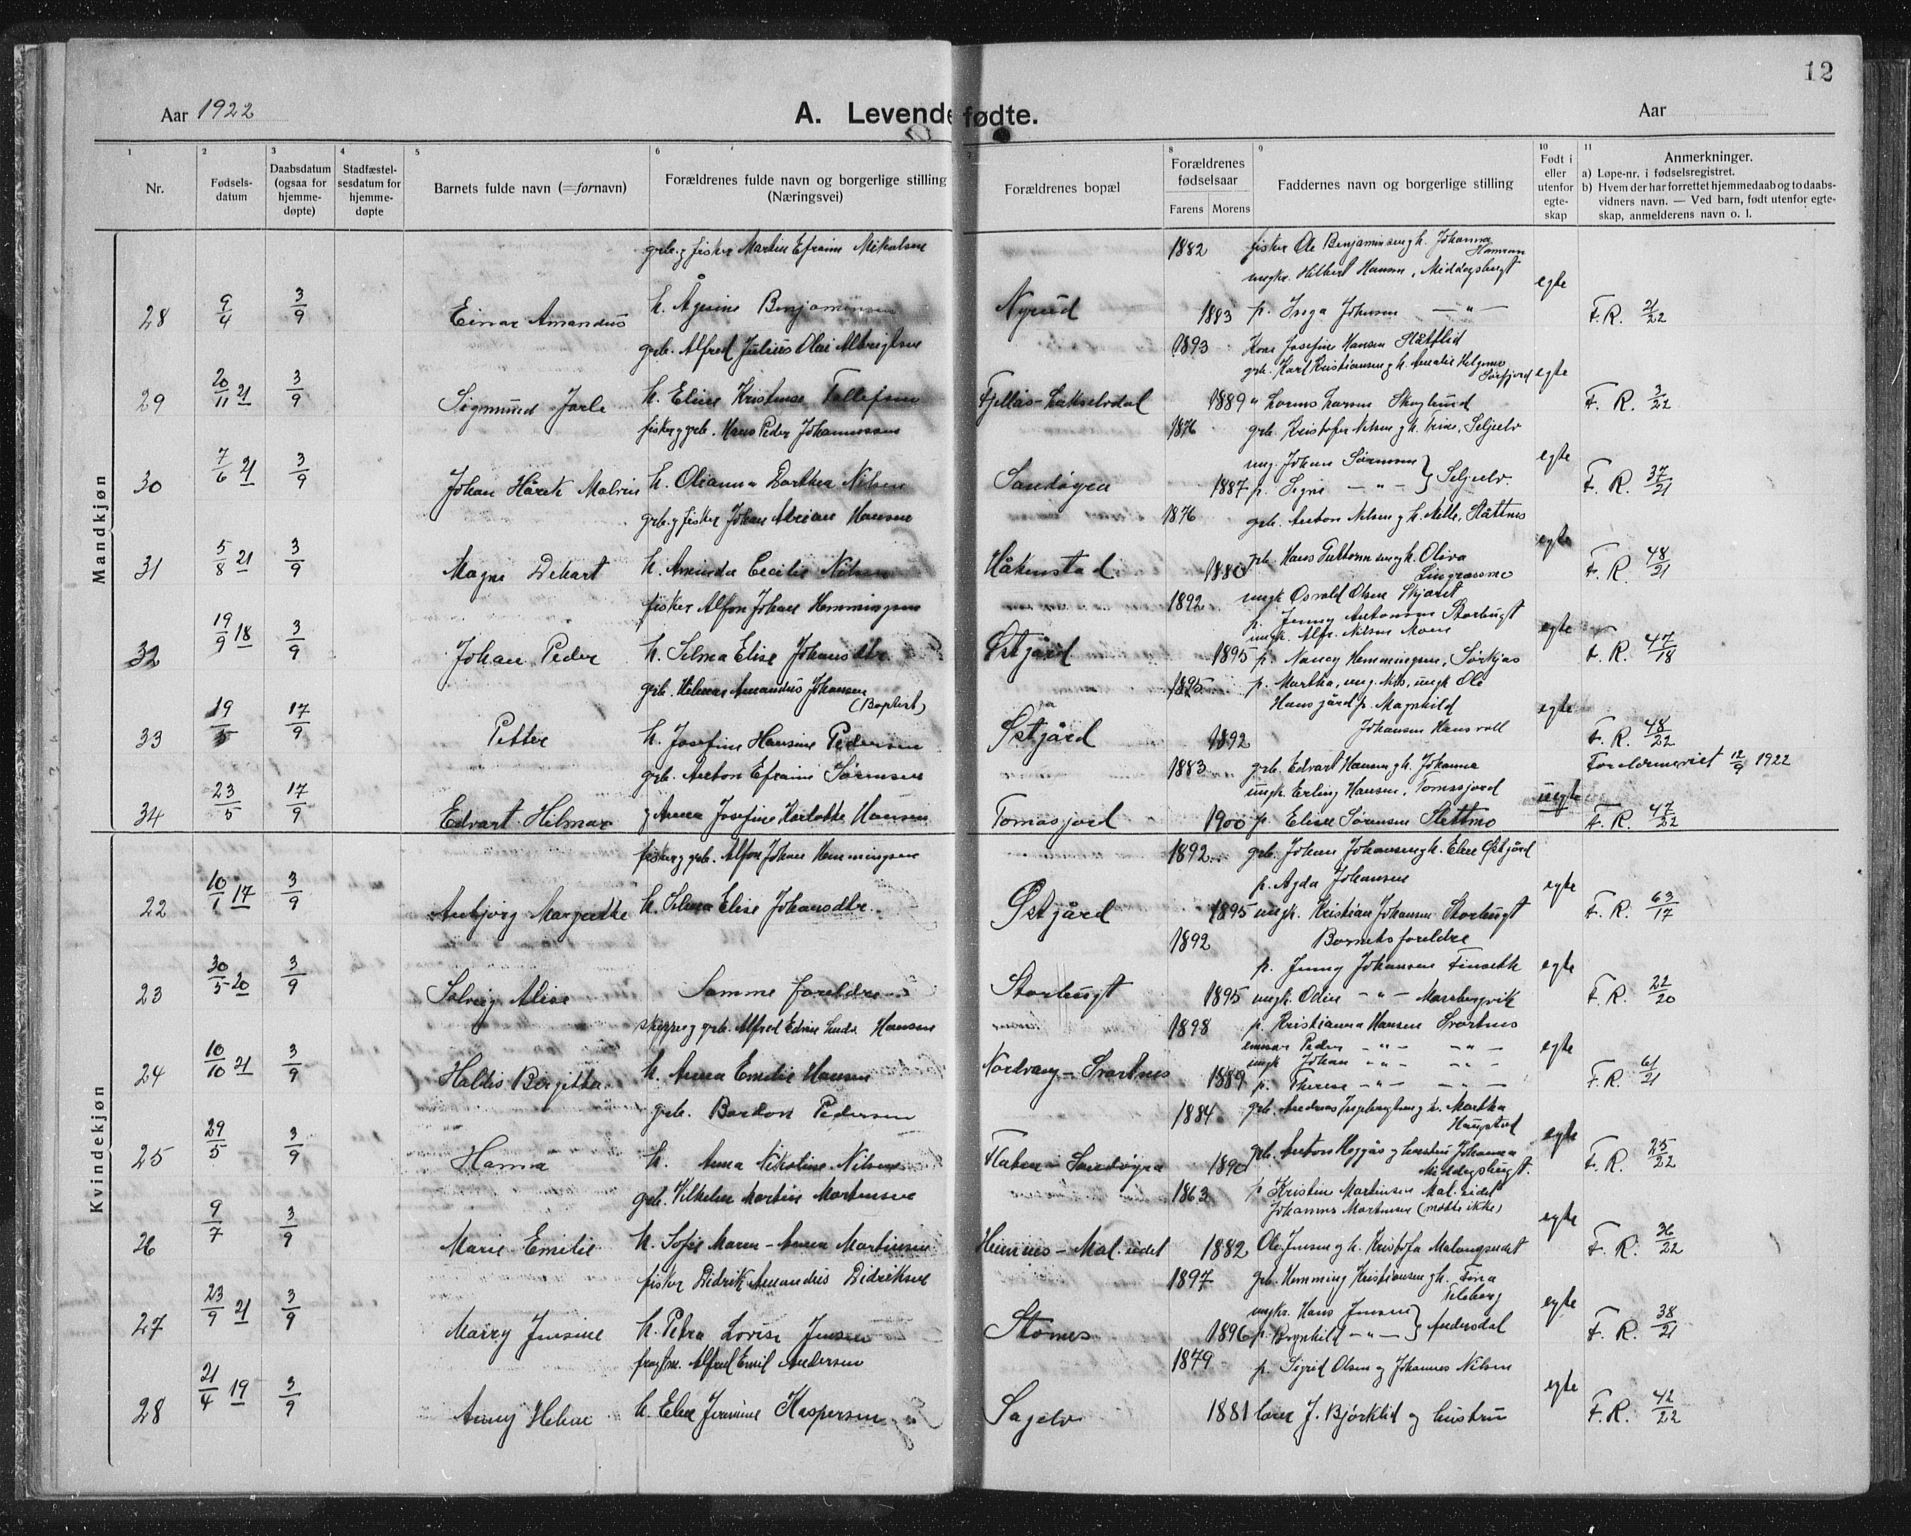 12
Aar 1922
A. Levendefødte.
Aar
1 2 3 4 5 6 7 8 9 10 11
Nr.
Fødselsdatum
Daabsdatum (ogsaa for hjemmedøpte)
Stadfæstelsesdatum for hjemmedøpte
Barnets fulde navn (=fornavn)
Forældrenes fulde navn og borgerlige stilling (Næringsvei)
Forældrenes bopæl
Forældrenes fødselsaar
Farens Morens
Faddernes navn og borgerlige stilling
Født i eller utenfor egteskap
Anmerkninger.
a) Løpe-nr. i fødselsregistret.
b) Hvem der har forrettet hjemmedaab og to daabsvidners navn. — Ved barn, født utenfor egteskap, anmelderens navn o. l.
Mandkjøn
grb. g fisker Martin Efraim Mikalsen 1882 fisker Ole Benjaminsen g h. Johanna Hansen
ungk. Hilbert Hansen, Middagsbugt egte
28 9/4 3/9 Einar Amandus h. Ågesine Benjaminsen Nyrud 1883 p. Inga Johnsen — " — F. R. 21/22
grb. Alfred Julius Olai Albrigtsen 1893 Kone Josefine Hansen Slåtlid
grb. Karl Kristiansen g h. Amalie Helgesen Sørfjord egte
29 20/11 21 3/9 Sigmund Jarle h. Elise Kristense Tollefsen Fjellås-Lakselvdal 1889 " Lorens Larsen Skoglund F. R. 3/22
fisker g grb. Hans Peder Johannessen 1876 grb. Kristofer Nilsen g h. Trine, Seljelv
ung. Johan Sørensen } Seljelv. egte
30 7/6 21 3/9 Johan Hårek Malvin h. Olianna Dorthea Nilsen Sandøyra 1887 p. Signe — " — F. R. 37/21
grb. g fisker Johan Adrian Hansen 1876 grb. Anton Nilsen g h. Mille, Slåttnes
egte
31 5/8 21 3/9 Magne Dekart h. Aminda Cecilie Nilsen Håkenstad 1880 grb. Hans g h. Oliva F. R. 48/21
fisker Alfon Johan Hemmingsen 1892 ungk. Osvald Olsen Skjæret
p. Jenny Antonsen Storbugt
ungk. Alfr. Nilsen Moen egte
32 19/9 18 3/9 Johan Peder h. Selma Elise Johansdtr. Østgård 1895 p. Nancy Hemmingsen, Sørkjos F. R. 47/18
grb. Hilmar Amandus Johansen (Baptist) 1895 p. Martha, ung. Nils, ungk Ole
Hansgård p. Magnhild egte
33 19/5 17/9 Petter h. Josefine Hansine Pedersen Østgård 1892 Johansen Hansvoll F. R. 48/22
grb. Anton Efraim Sørensen 1883 grb. Edvart Hansen g h. Johanna Foreldrene viet 12/9 1922
ungk. Erling Hansen, Tomasjord uegte
34 23/5 17/9 Edvart Hilmar g Anna Josefine Karlotte Hansen Tomasjord 1900 p Elise Sørensen Slettmo F. R. 47/22
Kvindekjøn
fisker g grb. Alfon Johan Hemmingsen 1892 grb. Johan Johansen g h. Elen Østgård
p. Agda Johansen egte
22 10/1 17 3/9 Anbjørg Margrethe h. Selma Elise Johansdtr. Østgård 1895 ungk. Kristian Johansen Storbugt F. R. 63/17
1892 Barnets foreldre
p. Jenny Johansen egte
23 30/5 20 3/9 Solveig Alise Samme foreldre Storbugt 1895 ungk. Odin — " — Maasbergvik F. R. 22/20
skipper g grb. Alfred Edvin Hansen 1898 p. Kristianna Hansen Svartnes
Peder — " — — " — egte
ungk Johan — " — — " —
24 10/10 21 3/9 Haldis Birgitha h. Anna Emelie Hansen Nordvang-Svartnes 1889 p. Therese — " — — " — F. R. 61/21
grb. Bardon Pedersen 1884 grb. Andreas Ingebrigtsen g h. Martha Haugstad
egte
25 29/5 3/9 Hanna h. Anna Nikoline Nilsen Flaten-Sandøyra 1890 grb. Anton Heggås g hustru Johanna Middagsbugt. F. R. 25/22
grb. Vilhelm Martin Martinsen 1863 p Kristine Martinsen Mal.eidet
Johannes Martinsen (møtte ikke) egte
26 9/7 3/9 Marie Emilie h. Sofie Maren-Anna Martinsen Hemnes-Mal.eidet 1882 Ole Jensen g h. Kristofa Malangseidet F. R. 36/22
fisker Didrik Amandus Didriksen 1897 grb. Hemming Kristiansen g h. Fina
ungk. Hans Jensen } Andersdal egte
27 23/9 21 3/9 Marry Jensine h. Petra Lovise Jensen Stornes 1896 p. Brynhild — " — F. R. 38/21
Alfred Emil Andersen 1879 p. Sigrid Olsen g Johannes Nilsen
egte
28 21/4 19 3/9 Anny Helene h. Elen Jermine Kaspersen Sagelv 1881 lærer J. Bjørklid og hustru F. R. 42/22